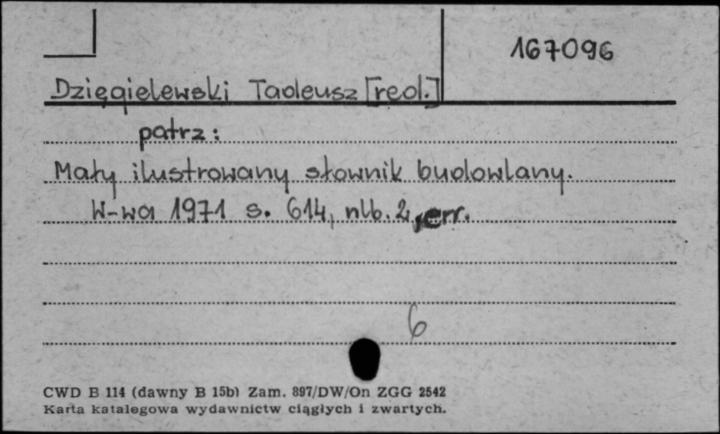 167096
Dzięgielewski Tadeusz [red.]
patrz:
Mały ilustrowany słownik budowlany.
W-wa 1971 s. 614, nlb. 2, err.
6
CWD B 114 (dawny B 15b) Zam. 897/DW/On ZGG 2542
Karta katalogowa wydawnictw ciągłych i zwartych.